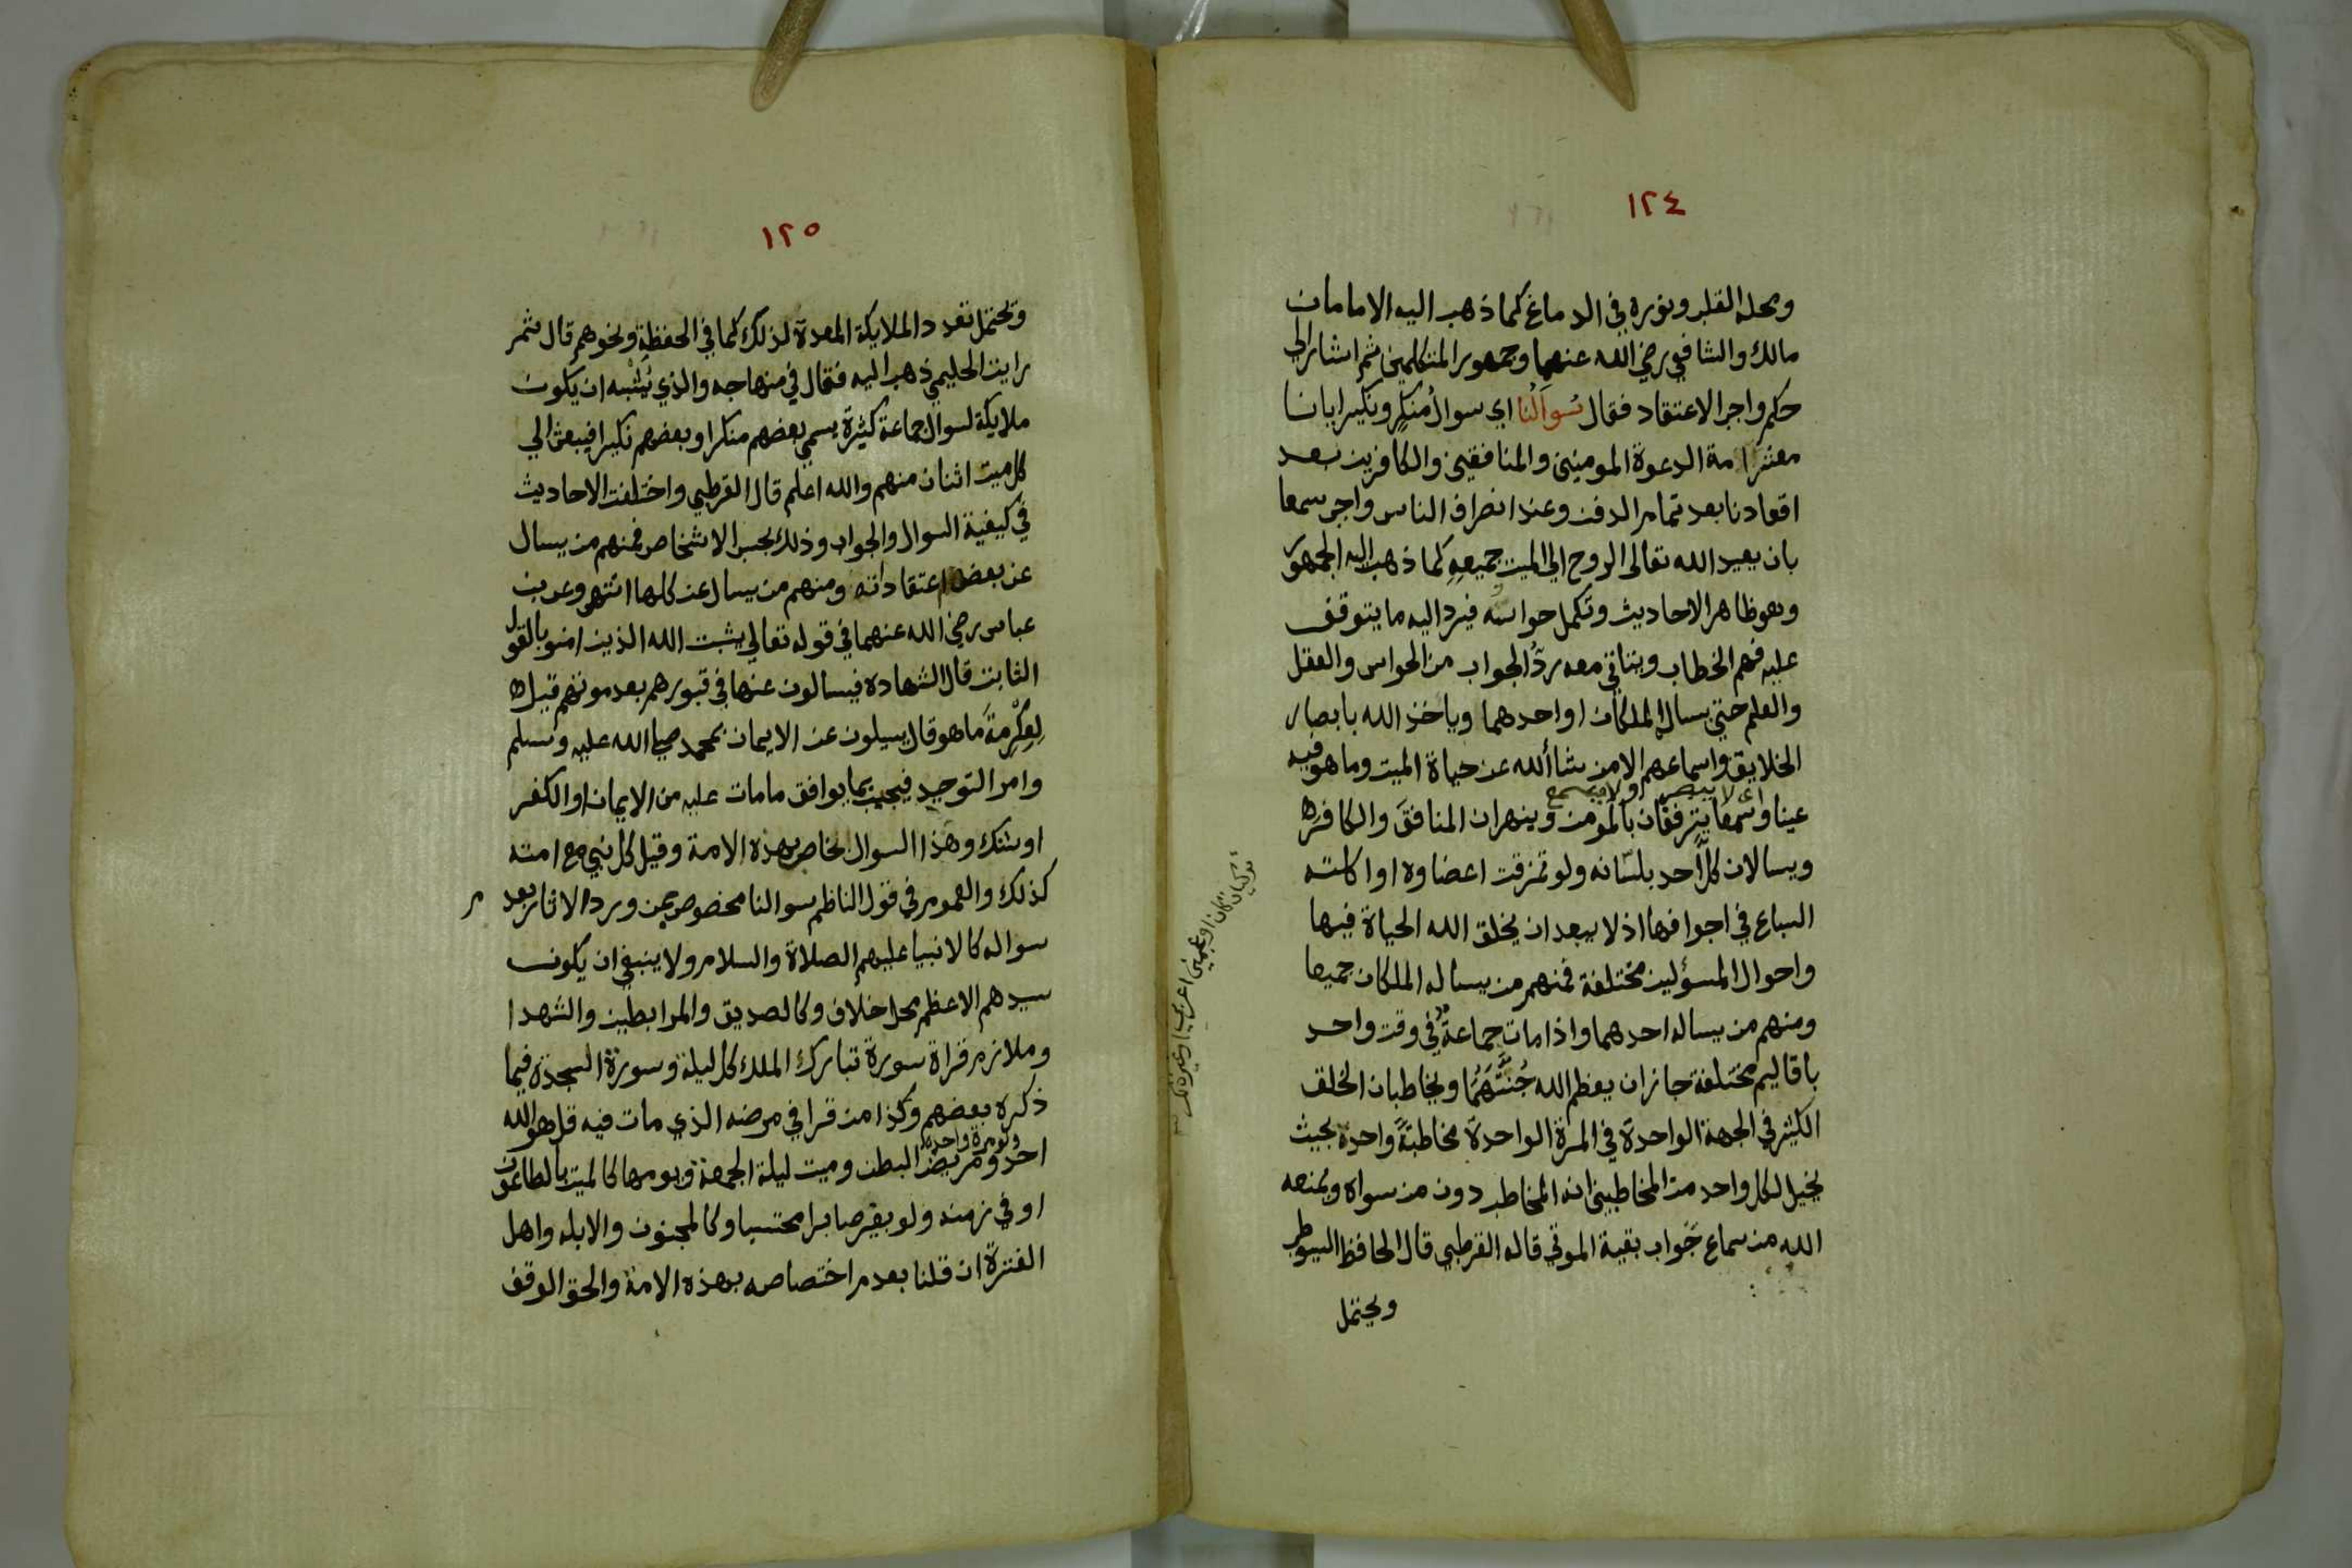 ١٢٤
ومحله القلب ونوره في الدماغ كما ذهب اليه الامامان
مالك والشافعي رضي الله عنهما وجمهور المتكلمين ثم اشار الي
حكم واجب الاعتقاد فقال سُوَالُنا اي سوال مُنكرٍ ونكير ايانا
معشر امة الدعوة المومنين والمنافقين والكافرين بعد
اقعادنا بعد تمام الدفن وعند انصراف الناس واجب سمعا
بان يعيد الله تعالى الروح الي الميت جميعِهِ كما ذهب اليه الجمهور
وهو ظاهر الاحاديث وتكمل حواسُّه فيرد اليه ما يتوقف
عليه فهم الخطاب ويتاتي معه ردُّ الجواب من الحواس والعقل
والعلم حتي يسال الملكان او احدهما وياخذ الله بابصار
الخلايق واسماعهم الا من شاأ الله عن حياة الميت وما هو فيه
اي لا يبصر ولا يسمع
عينا وسمعا يترفقان بالمومن وينهران المنافقَ والكافر
ويسالان كلَّ احد بلسانه ولو تمزقت اعضاوه او اكلته
السباع في اجوافها اذ لا يبعد ان يخلق الله الحياة فيها
واحوال المسؤلين مختلفة فمنهم من يساله الملكان جميعا
ومنهم من يساله احدهما واذا مات جماعةٌ في وقت واحد
باقاليم مختلفة جاز ان يعظم الله جُثَّتَهُمَا ويخاطبان الخلق
الكثير في الجهة الواحدة في المرة الواحدة مخاطبَةً واحدة بحيث
يخيل لكل واحد من المخاطبين انه المخاطب دون من سواه ويمنعه
الله من سماع جَواب بقية الموتي قاله القرطبي قال الحافظ السيوطي
ويحتمل
١٢٥
ويحتمل تعدد الملايكة المعدة لذلك كما في الحفظةِ ونحوهم قال ثم
رايت الحليمي ذهب اليه فقال في منهاجه والذي يُشْبه ان يكون
ملايكة لسوال جماعة كثيرة يسمي بعضهم منكرا وبعضهم نكيرا فيبعث الي
كل ميت اثنان منهم والله اعلم قال القرطبي واختلفت الاحاديث
في كيفية السوال والجواب وذلك بحسب الاشخاص فمنهم من يسال
عن بعض اعتقاداته ومنهم من يسال عن كلها انتهي وعن بن
عباس رضي الله عنهما في قوله تعالي يثبت الله الذين امنو بالقول
الثابت قال الشهاده فيسالون عنها في قبورهم بعد موتهم قيل
لِعِكْرِمةَ ما هو قال يسيلون عن الايمان بمحمد صلي الله عليه وسلم
وامر التوحيد فيجيب بما يوافق ما مات عليه من الايمان او الكفر
او شك وهَذا السوال خاص بهذه الامة وقيل كل نبي مع امته
كذلك والعموم في قول الناظم سوالنا مخصوص بمن ورد الاثار بعدم
سواله كالانبيا عليهم الصلاة والسلام ولا ينبغي ان يكون
سيدهم الاعظم محل خلاف وكالصديق والمرابطين والشهدا
وملازم قراة سورة تبارك الملك كل ليلة وسورة السجدة فيما
ذكره بعضهم وكذا من قرا في مرضه الذي مات فيه قل هو الله
ولو مرة واحدة
احد ومريض البطن وميت ليلة الجمعة ويومها كالميت بالطاعون
او في زمنه ولو بغير صابرا محتسبا وكالمجنون والابله واهل
الفترة ان قلنا بعدم اختصاصه بهذه الامة والحق الوقف